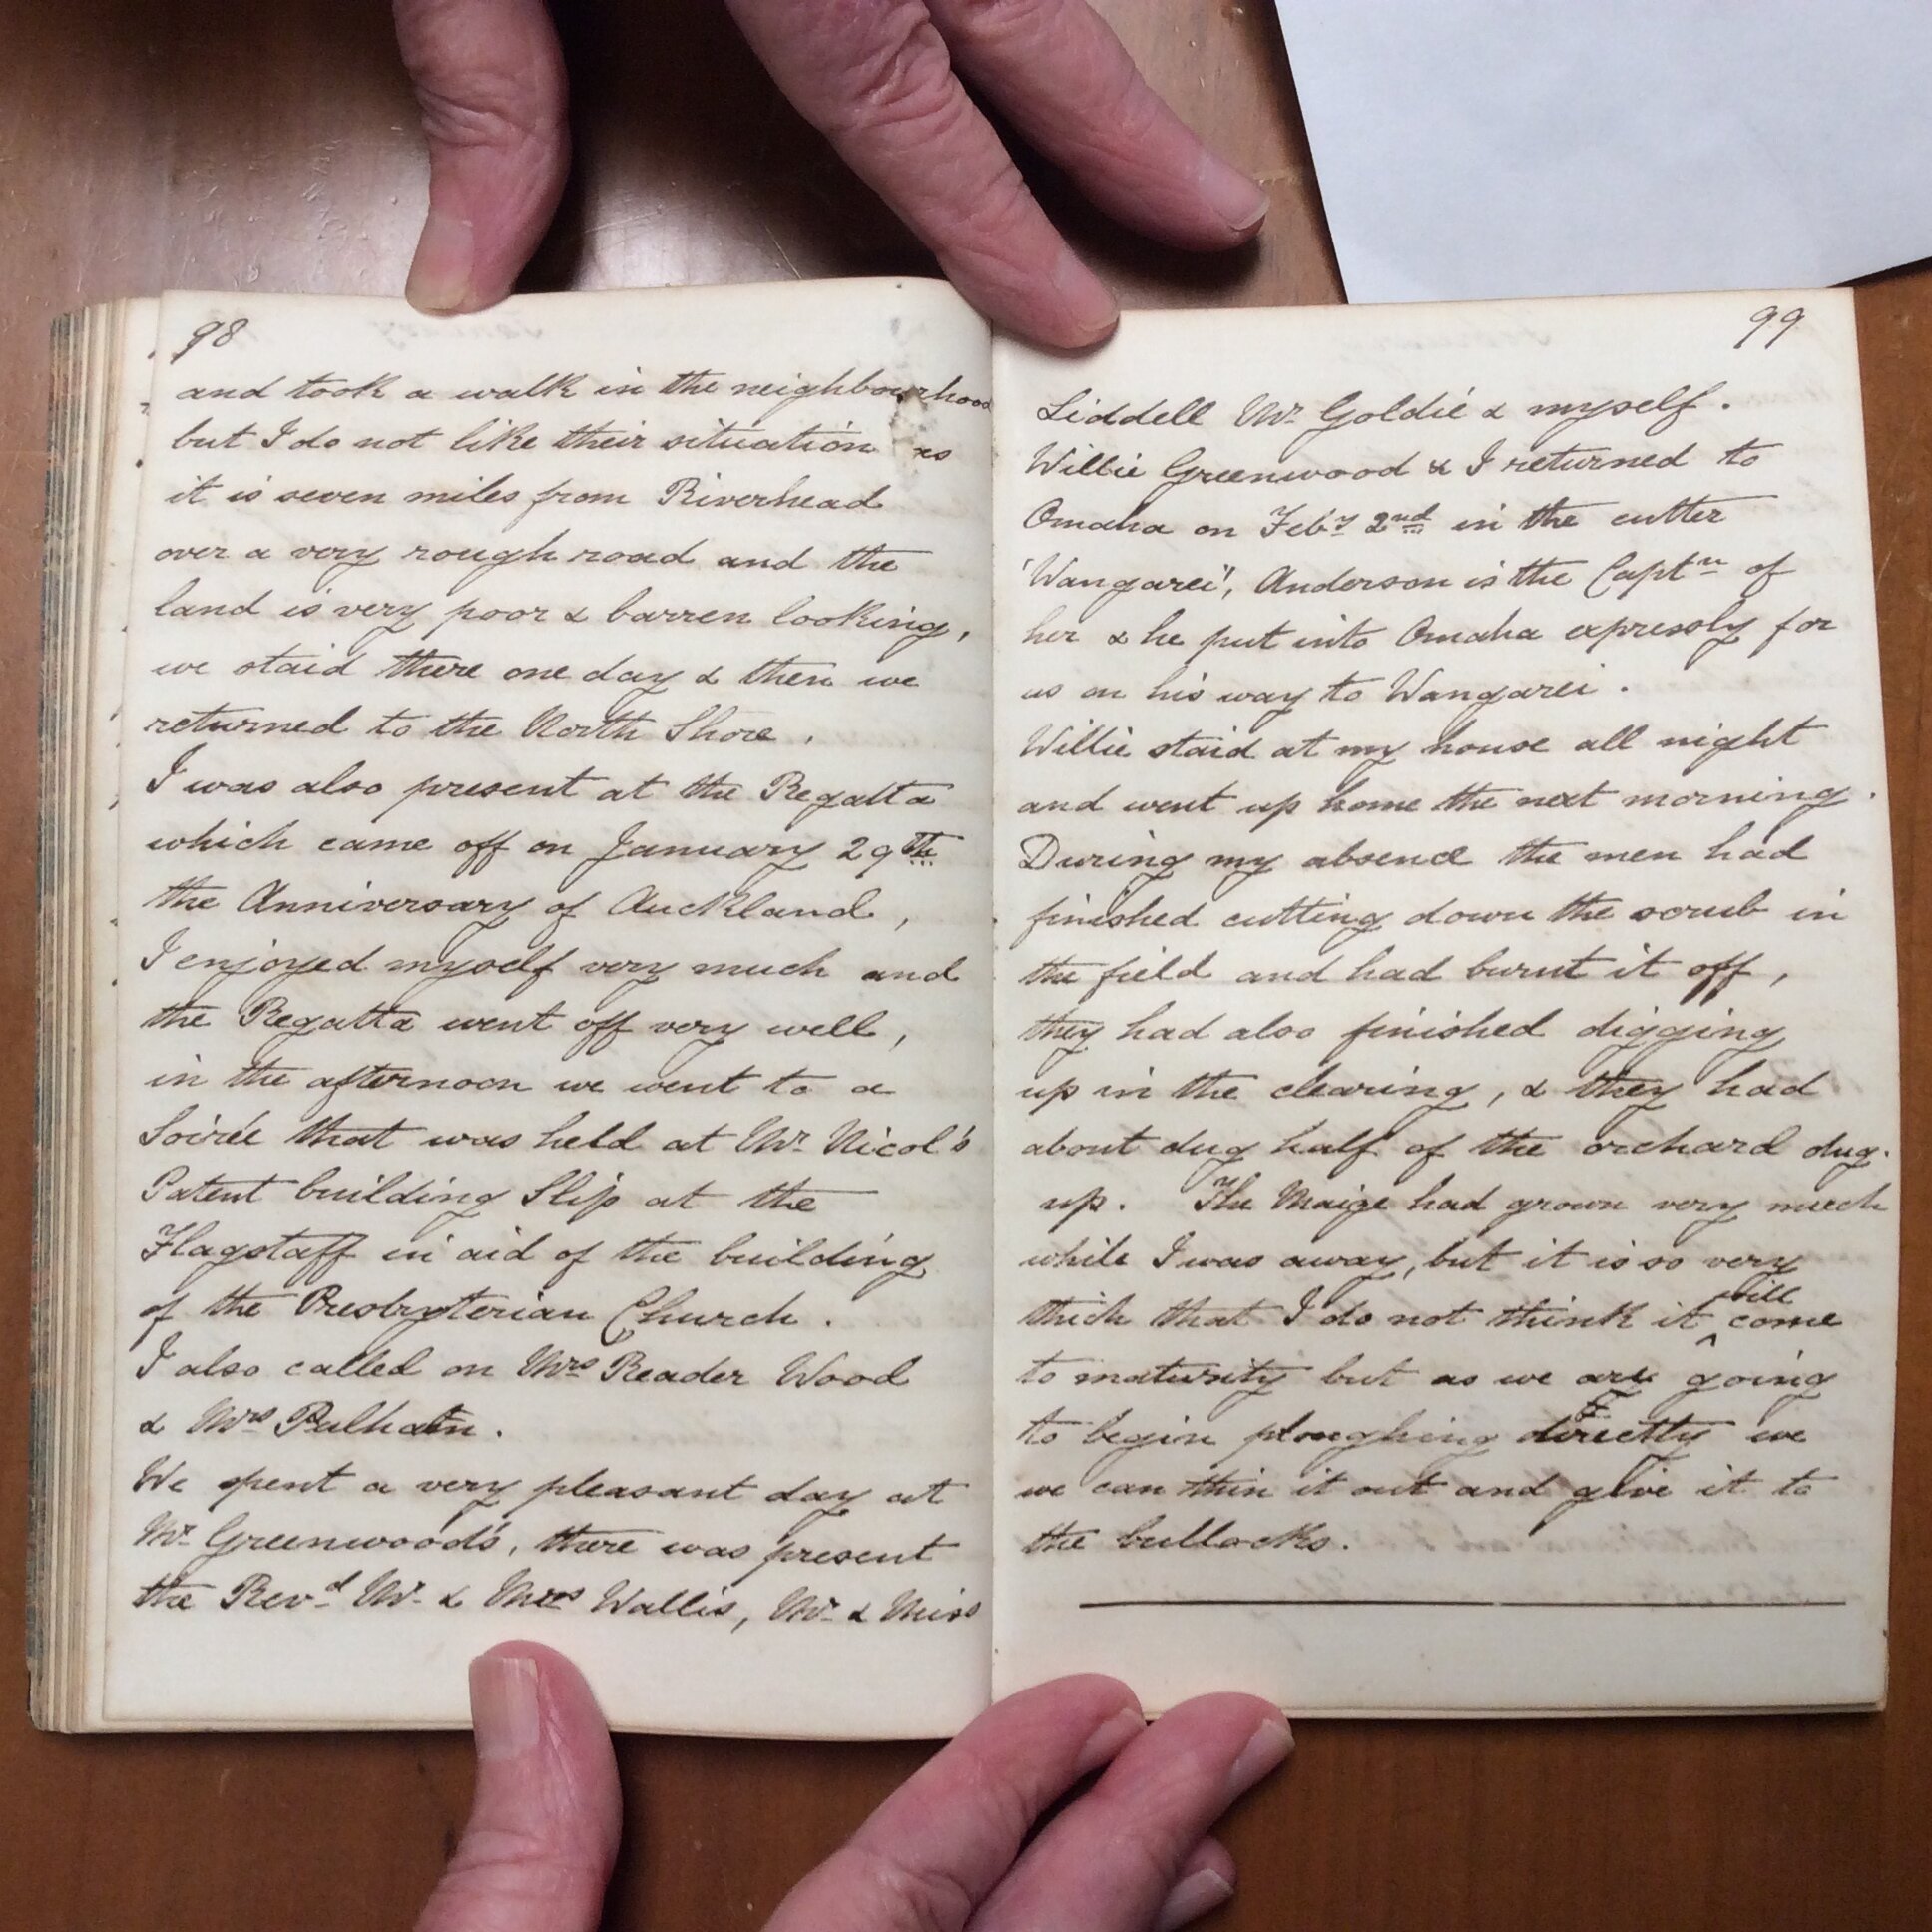 98
and took a walk in the neighbourhood
but I do not like their situation as
it is seven miles from Riverhead
over a very rough road and the
land is very poor & barren looking,
we staid there one day & then we
returned to the North Shore.
I was also present at the Regatta
which came off on January 29th
the Anniversary of Auckland,
I enjoyed myself very much and
the Regatta went off very well,
in the afternoon we went to a
Soirée that was held at Mr Nicol's
Patent building Slip at the
Flagstaff in aid of the building
of the Presbyterian Church.
I also called on Mrs Reader Wood
& Mrs
We spent a very pleasant day at
Mr Greenwood's, there was present
the Revd Mr & Mrs Wallis, Mr & Miss
99
Liddell Mr Goldie & myself.
Willie Greenwood & I returned to
Omaha on Feby 2nd in the cutter
'Wangarei', Anderson is the Captn of
her & he put into Omaha expressly for
us on his way to Wangarei.
Willie staid at my house all night
and went up home the next morning.
During my absence the men had
finished cutting down the scrub in
the field and had burnt it off,
they had also finished digging
up in the clearing, & they had
about dug half of the orchard dug
up. The Maize had grown very much
while I was away, but it is so very
thick that I do not think it will come
to maturity but as we are going
to begin ploughing directly we
we can thin it out and give it to
the bullocks.